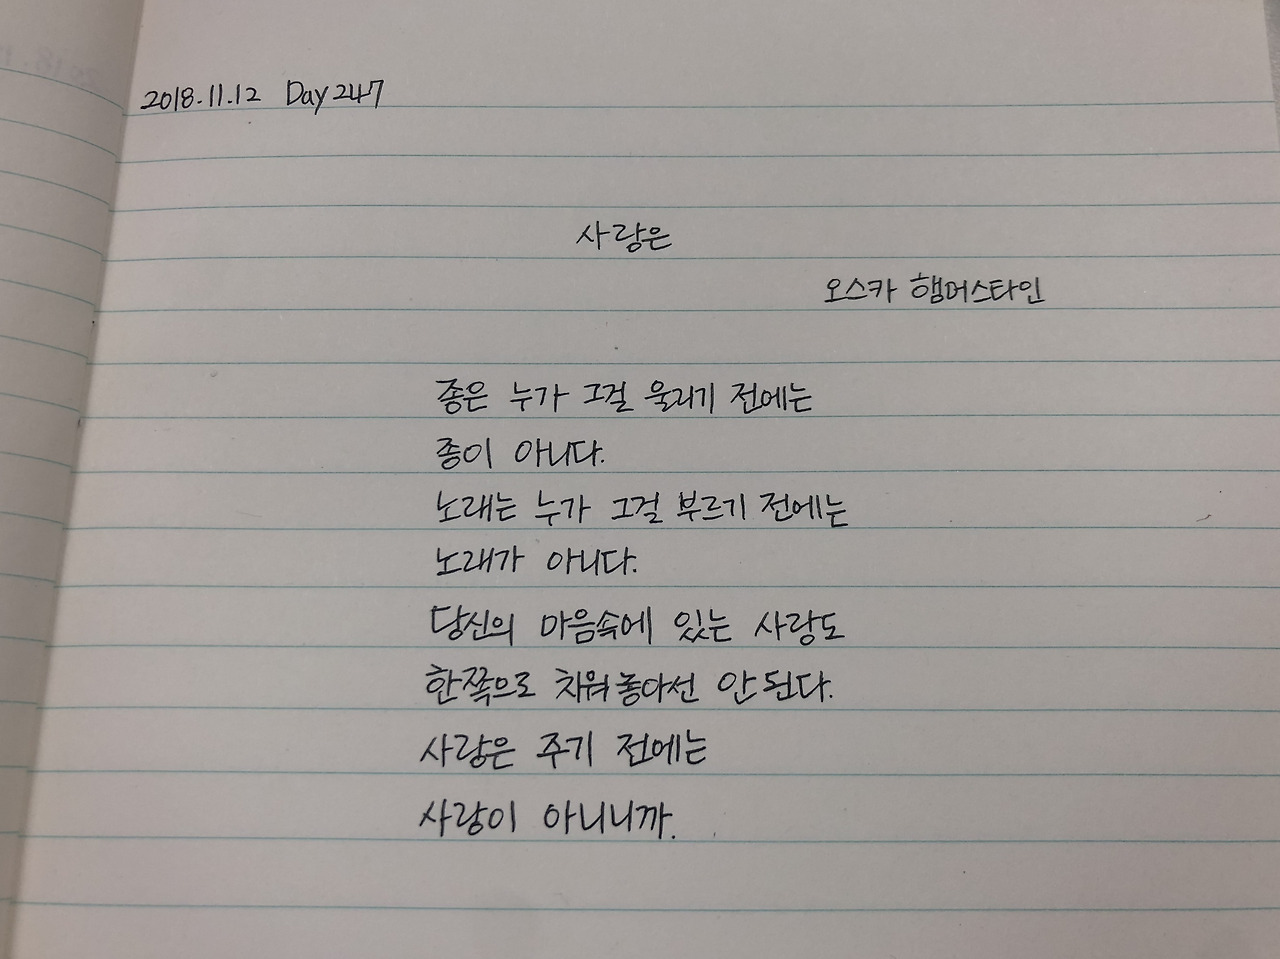 2018.11.12 Day 247
사랑은
오스카 햄머스타인
종은 누가 그걸 울리기 전에는
종이 아니다.
노래는 누가 그걸 부르기 전에는
노래가 아니다.
당신의 마음속에 있는 사랑도
한쪽으로 치워놓아선 안된다.
사랑은 주기 전에는
사랑이 아니니까.